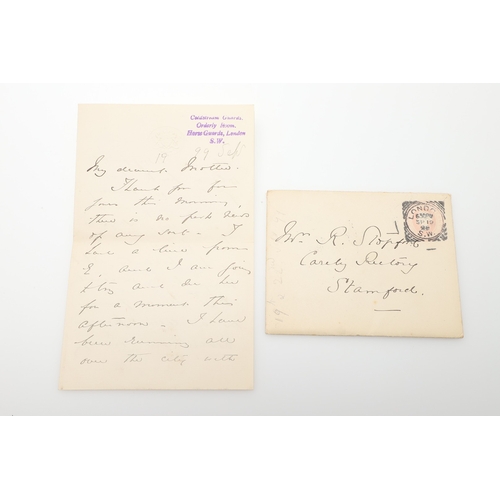 Coldstream Guards,
Orderly Room,
Horse Guards, London
S.W.
19 99 Sep
My dearest Mother.
Thank you for
yours this morning,
there is no fresh news
of any sort - I
have a line from
E. and I am going
to try and see her
for a moment this
afternoon. I have
been running all
over the city with
LONDON
SP 19
99
S.W
Mrs. R. Stopford
Careby Rectory
Stamford.